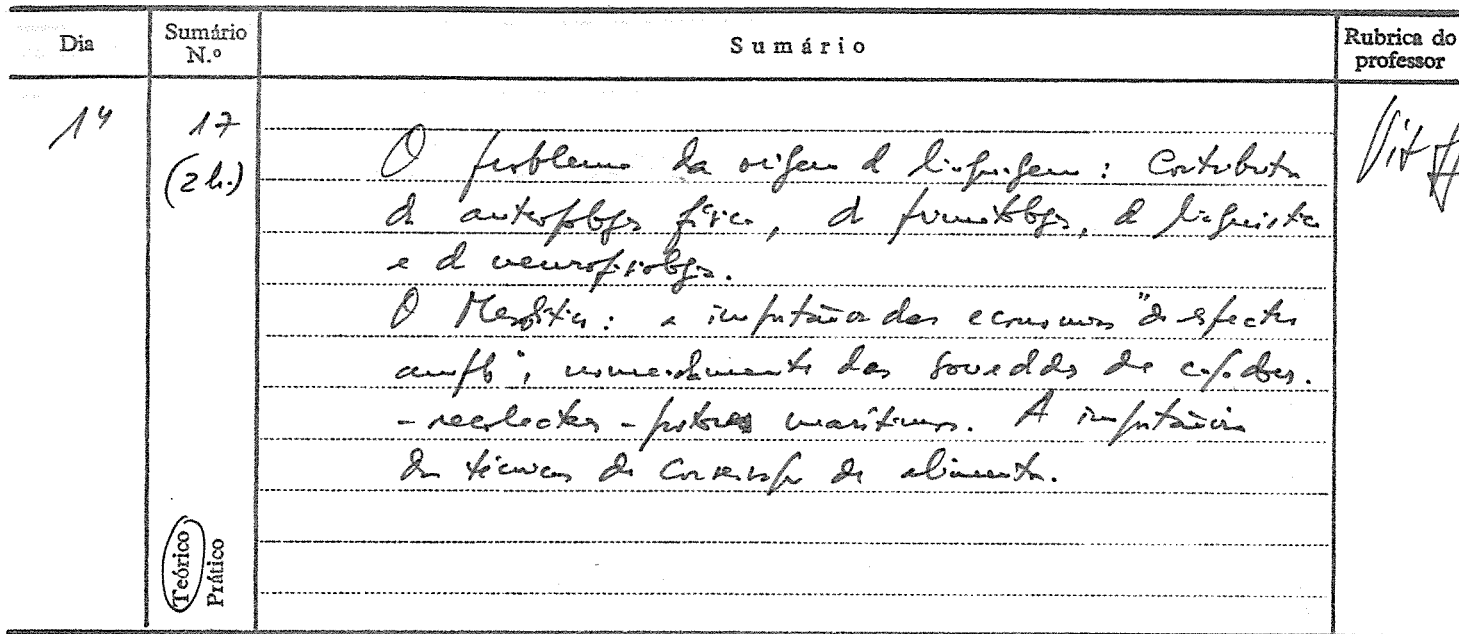 Dia
Sumário N.º
Sumário
Rubrica do professor
14
17
(2 h.)
O problema da origem da linguagem: Contributos
da antropologia física, da primatologia, da linguística
e da neurofisiologia.
O Mesolítico: a importância das economias "de espectro
amplo", nomeadamente das sociedades de caçadores
- recolectores - pescadores marítimos. A importância
das técnicas de conservação de alimentos.
Teórico
Prático